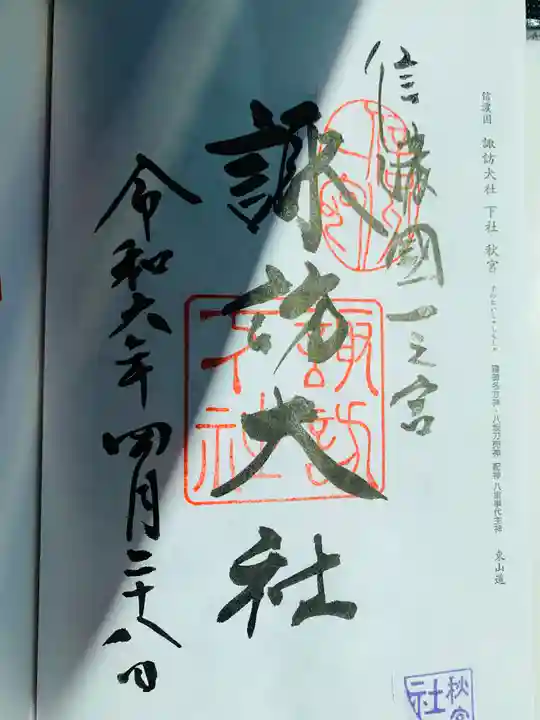 信濃國 諏訪大社 下社 秋宮 建御名方神・八坂刀売神 配神 八重事代主神 東山道
信濃國一之宮
諏訪大社
令和六年四月二十八日
諏訪
下社
秋宮
社